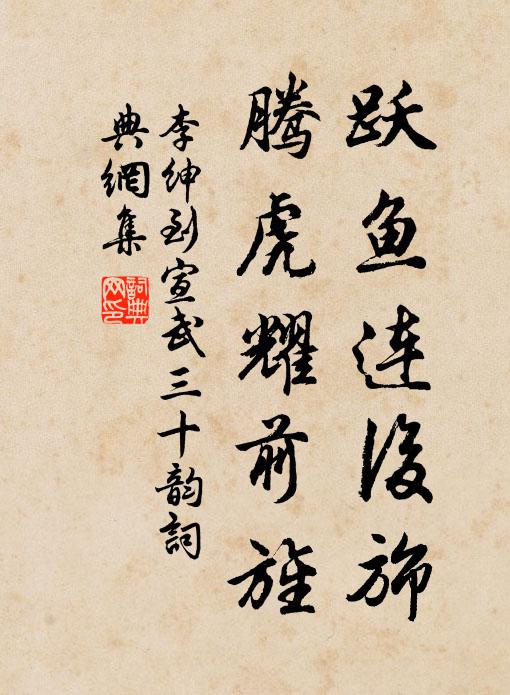 跃鱼连後旆
腾虎耀前旌
李绅到宣武三十韵詞
典網集
詞典网印